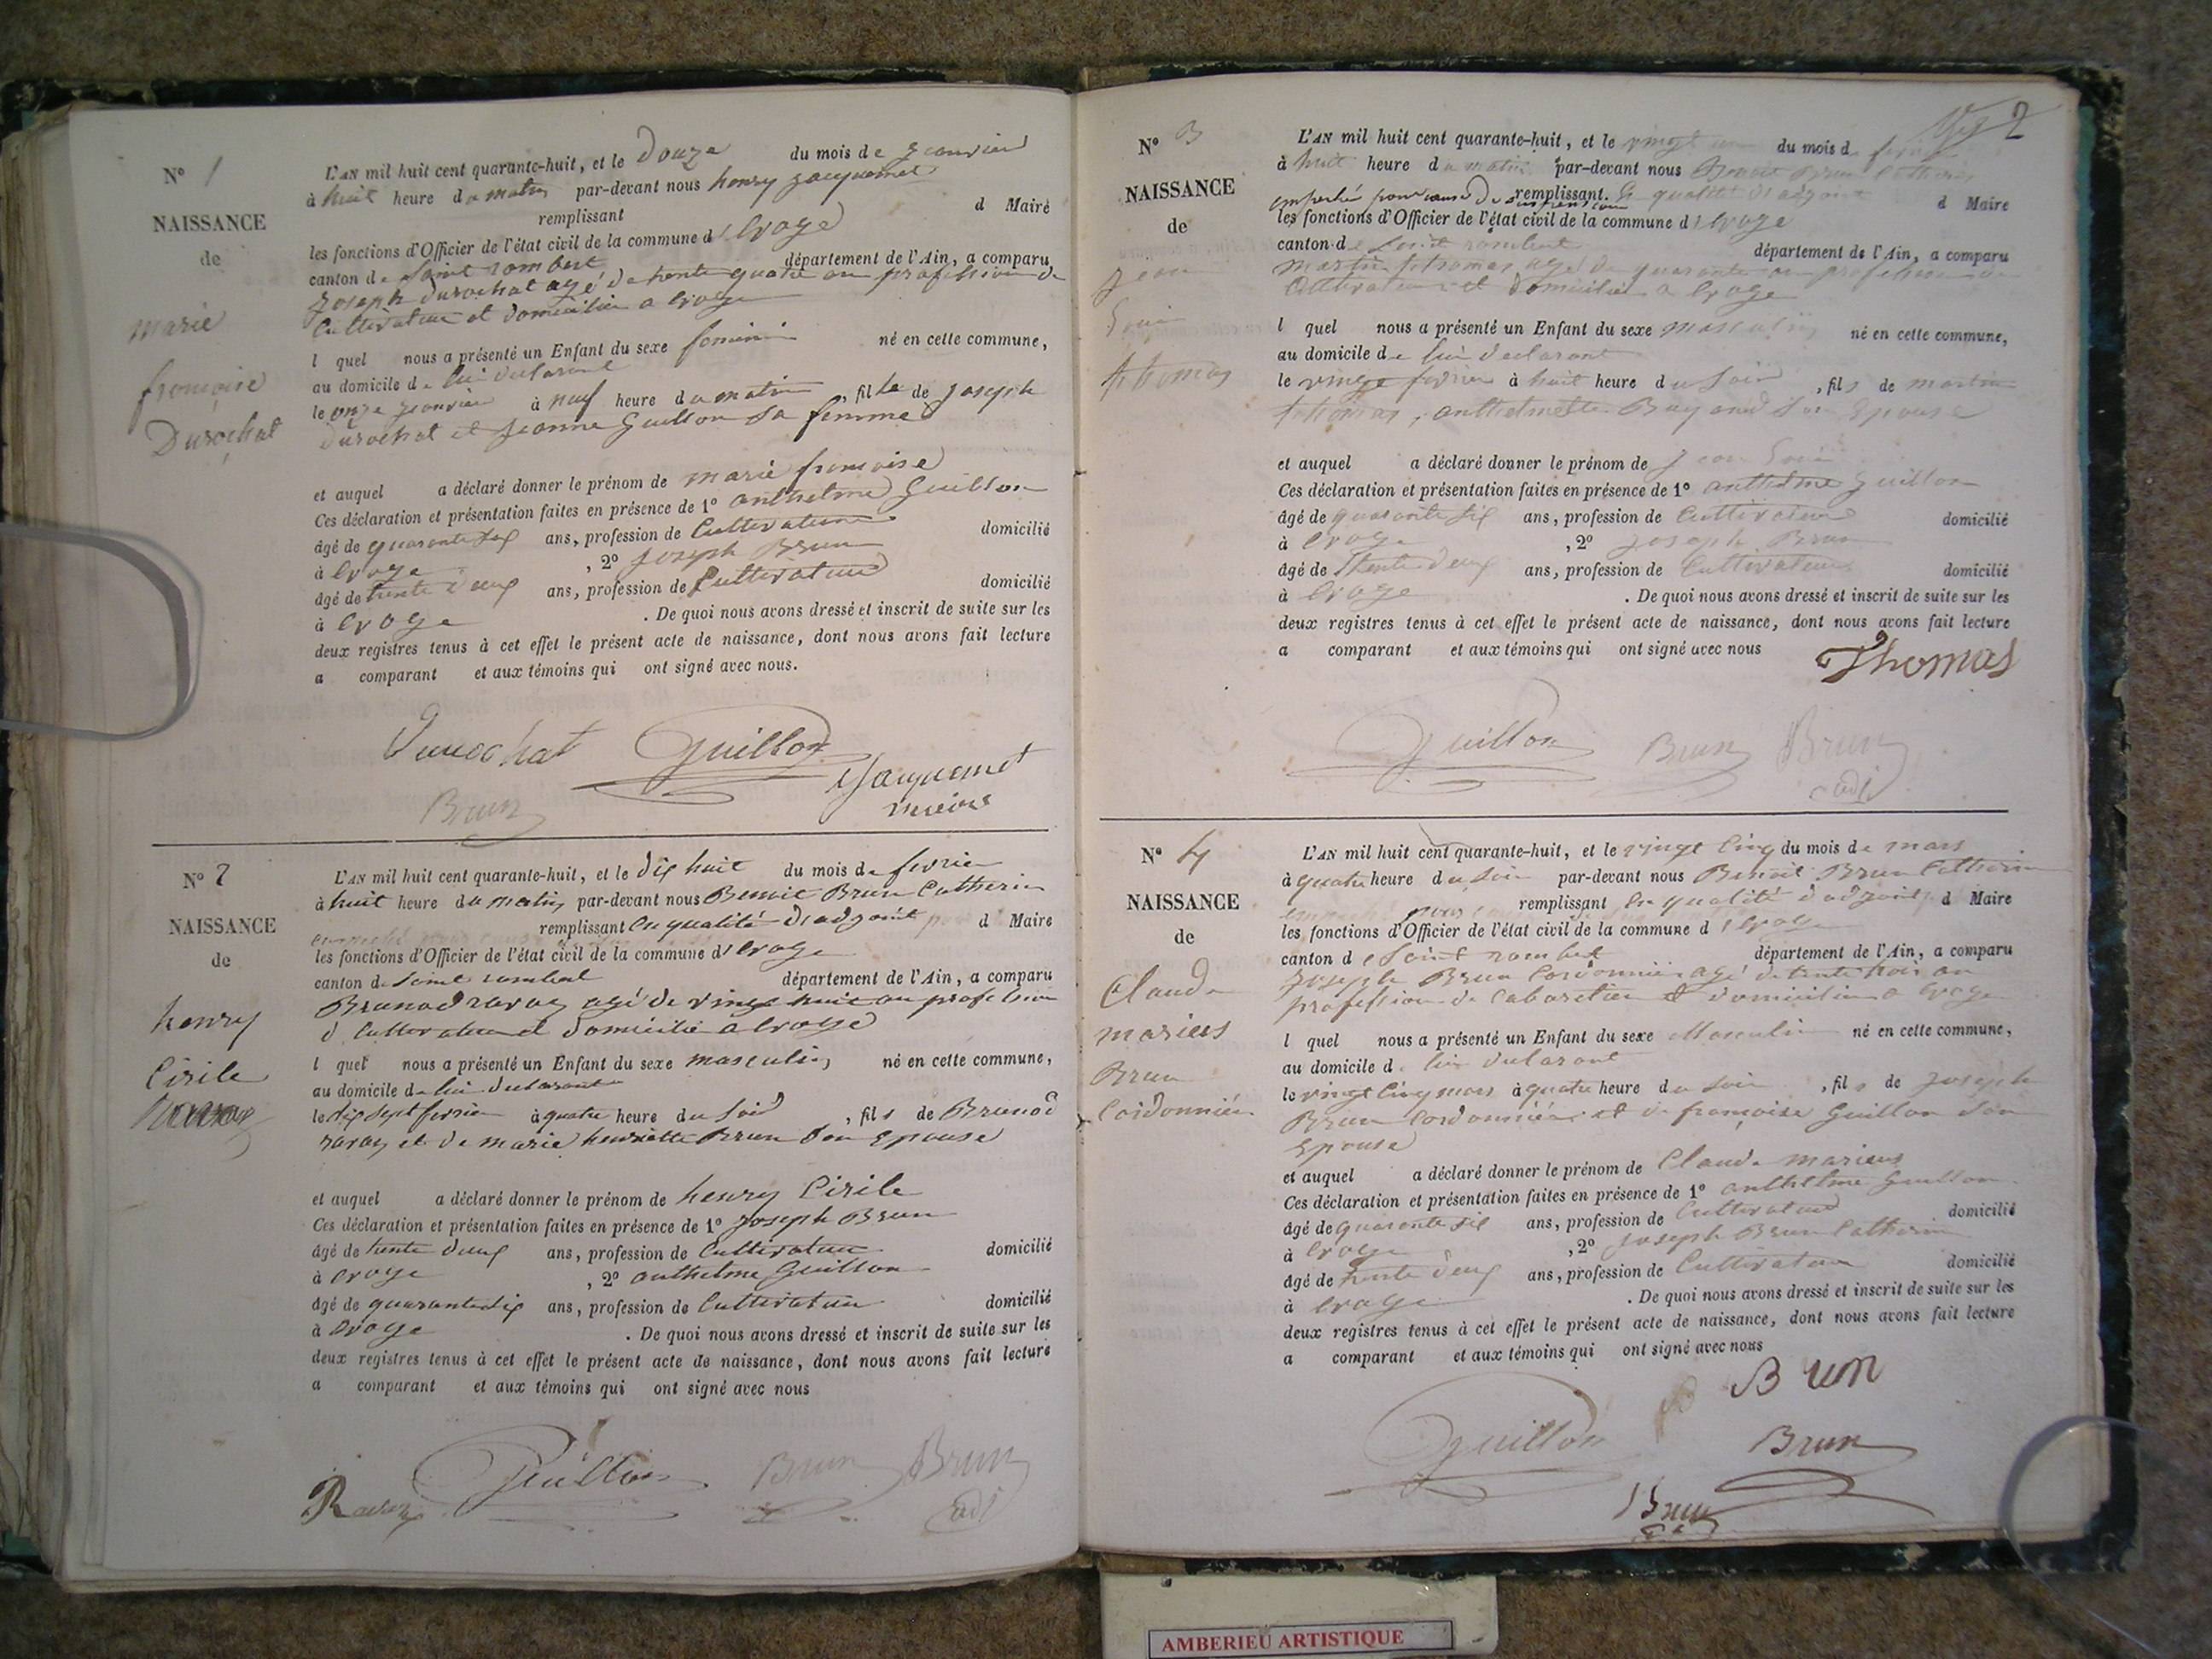 N° 1
NAISSANCE
de
marie
françoise
Durochat
L'AN mil huit cent quarante-huit, et le Douze du mois de janvier
à huit heure du matin par-devant nous henry jacquemet
remplissant d Maire
les fonctions d'Officier de l'état civil de la commune d' Evoge
canton de Saint rambert département de l'Ain, a comparu
joseph Durochat agé de trente quatre an profession de
Cultivateur et domicilié a Evoge
l quel nous a présenté un Enfant du sexe feminin né en cette commune,
au domicile de lui declarant
le onze janvier à neuf heure du matin, fille de joseph
Durochat et jeanne Guillon Sa femme
et auquel a déclaré donner le prénom de marie françoise
Ces déclaration et présentation faites en présence de 1° anthelme Guillon
âgé de quarante six ans, profession de Cultivateur domicilié
à Evoge, 2° joseph Brun
âgé de trente deux ans, profession de Cultivateur domicilié
à Evoge. De quoi nous avons dressé et inscrit de suite sur les
deux registres tenus à cet effet le présent acte de naissance, dont nous avons fait lecture
a comparant et aux témoins qui ont signé avec nous.
Durochat Guillon
Jacquemet
Brun maire
N° 2
NAISSANCE
de
henry
Cirile
Ravaz
L'AN mil huit cent quarante-huit, et le dix huit du mois de fevrier
à huit heure du matin par-devant nous Benoit Brun Catherin
remplissant En qualité d'adjoint d Maire
les fonctions d'Officier de l'état civil de la commune d' Evoge
canton de Saint rambert département de l'Ain, a comparu
Brunod ravaz agé de vingt huit an profession
d Cultivateur et domicilié a Evoge
l quel nous a présenté un Enfant du sexe masculin né en cette commune,
au domicile de lui declarant
le dix sept fevrier à quatre heure du Soir, fils de Brunod
ravaz et de marie henriette Brun Son Epouse
et auquel a déclaré donner le prénom de henry Cirile
Ces déclaration et présentation faites en présence de 1° joseph Brun
âgé de trente deux ans, profession de Cultivateur domicilié
à Evoge, 2° anthelme Guillon
âgé de quarante six ans, profession de Cultivateur domicilié
à Evoge. De quoi nous avons dressé et inscrit de suite sur les
deux registres tenus à cet effet le présent acte de naissance, dont nous avons fait lecture
a comparant et aux témoins qui ont signé avec nous
Ravaz Guillon Brun Brun
adj
2
N° 3
NAISSANCE
de
jean
Thomas
L'AN mil huit cent quarante-huit, et le vingt un du mois de
à huit heure du matin par-devant nous Benoit Brun Catherin
empeché pour cause de suspension remplissant En qualité d'adjoint d Maire
les fonctions d'Officier de l'état civil de la commune d' Evoge
canton de Saint rambert département de l'Ain, a comparu
martin thomas agé de quarante an profession de
Cultivateur et domicilié a Evoge
l quel nous a présenté un Enfant du sexe masculin né en cette commune,
au domicile de lui declarant
le vingt fevrier à huit heure du Soir, fils de martin
thomas, anthelmette Son Epouse
et auquel a déclaré donner le prénom de jean
Ces déclaration et présentation faites en présence de 1° anthelme Guillon
âgé de quarante six ans, profession de Cultivateur domicilié
à Evoge, 2° joseph Brun
âgé de Trente deux ans, profession de Cultivateur domicilié
à Evoge. De quoi nous avons dressé et inscrit de suite sur les
deux registres tenus à cet effet le présent acte de naissance, dont nous avons fait lecture
a comparant et aux témoins qui ont signé avec nous
Thomas
Guillon Brun Brun
adj
N° 4
NAISSANCE
de
Claude
marius
Brun
Cordonnier
L'AN mil huit cent quarante-huit, et le vingt Cinq du mois de mars
à quatre heure du Soir par-devant nous Benoit Brun Catherin
remplissant En qualité d'adjoint d Maire
les fonctions d'Officier de l'état civil de la commune d' Evoge
canton de Saint rambert département de l'Ain, a comparu
joseph Brun Cordonnier agé de trente trois an
profession de Cabaretier et domicilié a Evoge
l quel nous a présenté un Enfant du sexe Masculin né en cette commune,
au domicile de lui declarant
le vingt Cinq mars à quatre heure du Soir, fils de joseph
Brun Cordonnier et de françoise Guillon Son
Epouse
et auquel a déclaré donner le prénom de Claude marius
Ces déclaration et présentation faites en présence de 1° anthelme Guillon
âgé de quarante six ans, profession de Cultivateur domicilié
à Evoge, 2° joseph Brun Catherin
âgé de trente deux ans, profession de Cultivateur domicilié
à Evoge. De quoi nous avons dressé et inscrit de suite sur les
deux registres tenus à cet effet le présent acte de naissance, dont nous avons fait lecture
a comparant et aux témoins qui ont signé avec nous
Brun
Guillon Brun
Brun
AMBERIEU ARTISTIQUE